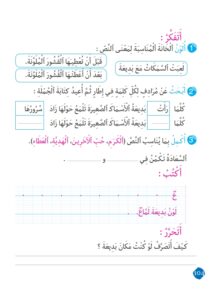 أَتَفَكَّرُ :
1 أُلَوِّنُ الْخَانَةَ الْمُنَاسِبَةَ لِمَعْنَى النَّصِّ :
لَعِبَتْ السَّمَكَاتُ مَعَ بَدِيعَةَ
قَبْلَ أَنْ تُعْطِيَهَا الْقُشُورَ الْمُلَوَّنَةَ.
بَعْدَ أَنْ أَعْطَتْهَا الْقُشُورَ الْمُلَوَّنَةَ.
2 أَبْحَثُ عَنْ مُرَادِفٍ لِكُلِّ كَلِمَةٍ فِي إِطَارٍ ثُمَّ أُعِيدُ كِتَابَةَ الْجُمْلَةِ :
كُلَّمَا رَأَتْ بَدِيعَةُ الْأَسْمَاكَ الصَّغِيرَةَ تَلْمَعُ حَوْلَهَا زَادَ سُرُورُهَا
كُلَّمَا بَدِيعَةُ الْأَسْمَاكَ الصَّغِيرَةَ تَلْمَعُ حَوْلَهَا زَادَ
3 أُكْمِلُ بِمَا يُنَاسِبُ النَّصَّ (الْكَرَمِ، حُبِّ الْآخَرِينَ، الْهَدِيَّةِ، الْعَطَاءِ).
السَّعَادَةُ تَكْمُنُ فِي و .
أَكْتُبُ :
ج
لَوْنُ بَدِيعَةَ لَمَّاعٌ.
أَتَحَرَّرُ :
كَيْفَ أَتَصَرَّفُ لَوْ كُنْتُ مَكَانَ بَدِيعَةَ ؟